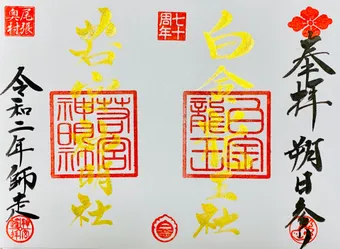 奉拝 朔日参り
七十周年
白金龍王社
白金龍王
若宮神明社
若宮神明社
尾張奥村
令和二年師走